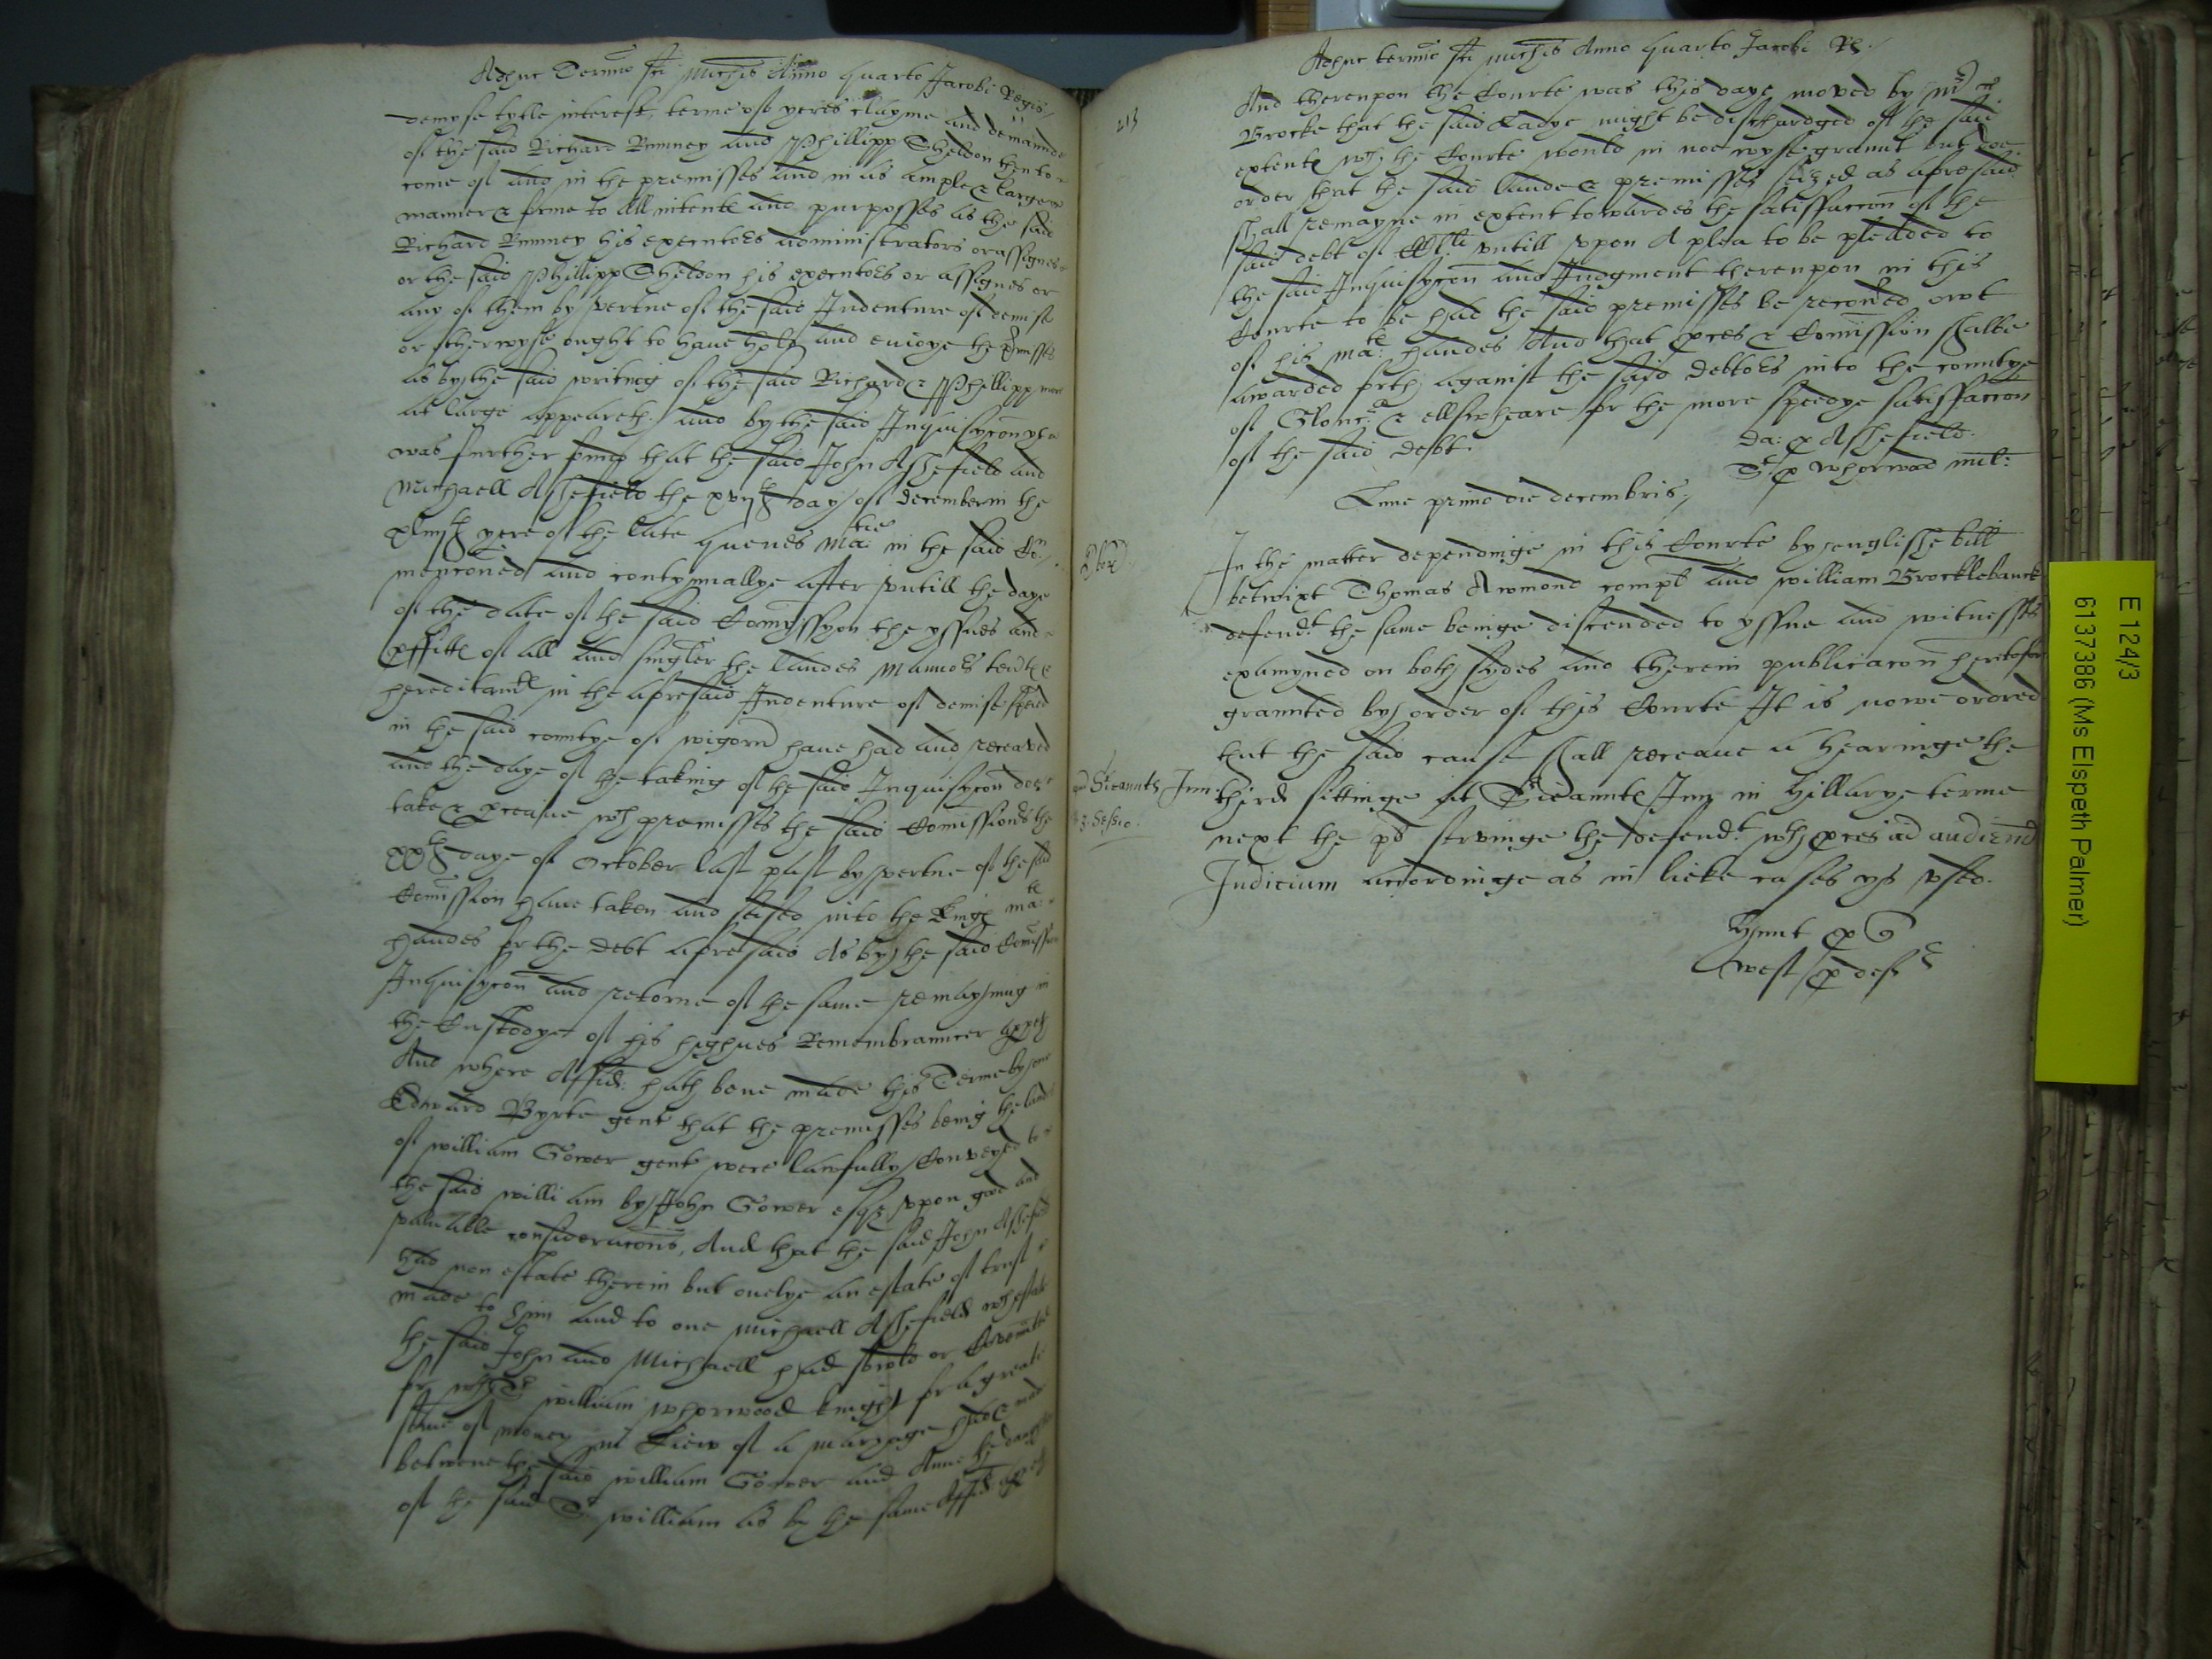 Adhuc Termio sci Michis Anno quarto Jacobi Regis
demyse tytle interest, terme of yeres clayme and demaunde
of the said Richard Rumney and Phillipp Sheldon then to
come of and in the premisses and in as ample & large
manner & forme to all intents and purposses as the said
Richard Rumney his executors administrators or assignes
or the said Phillipp Sheldon his executors or assignes or
any of them by vertue of the said Indenture of demise
or otherwyse ought to have hold and enioye the pmisses
as by the said writing of the said Richard & Phillipp more
at large appeareth. And by the said Inquisycon yt
was further found that the said John Ashefield and
Michaell Ashefield the day of december in the
yere of the late Quenes Matie in the said Com
mencioned and contynuallye after untill the daye
of the date of the said Comyssyon the yssues and
pffitts of all and singler the landes mannors tents &
hereditamts in the aforesaid Indenture of demise
in the said countye of wigorn have had and receaved
and the daye of the taking of the said Inquisycon doe
take & receive wch premisses the said Comissioners the
xxth daye of October last past by vertue of the said
Comission have taken and seised into the Kings mats
handes for the debt aforesaid As by the said Comission
Inquisycon and retorne of the same remayning in
the Custodye of his highnes Remembrauncer appeth
And where Affid: hath bene made this Terme by one
Edward Byrte gent that the premisses being the lands
of william Gower gent were lawfully Conveyed to
the said william by John Gower esqr upon good and
valuable consideracons, And that the said John Ashefield
had non estate therein but onelye an estate of trust
made to him and to one Michaell Ashefield wch estate
the said John and Michaell had sowld or Comitted
Sr william whorwood knight for a greate
some of money in Liew of a mariage had & made
betwene the said william Gower and Anne the daughter
of the said Sr william as by the same Affid appeth
213
Adhuc termio sci Michis Anno quarto Jacobi Rs
And thereupon the Courte was this daye moved by Mr
Brocke that the said Ladye might be dischardged of the said
extents wch the Courte would in noe wyse graunt but doe
order that the said lande & premisses seized as aforesaid
shall remayne in extent towardes the satisfaccon of the
said debt of untill upon A plea to be pleaded to
the said Inquisycon and Judgment thereupon in this
Courte to be had the said premisses be recoued owt
of his mats handes And that pces & Comission shalbe
awarded forth against the said debtors into the countye
of Glouc & ellswheare for the more speedye satisfaccon
of the said debt.
Da: p Ashefield.
Sr p Whorwod mil:
Lune primo die decembris
Ebor
In the matter dependinge in this Courte by englishe bill
betwixt Thomas Awmond complt and william Brocklebanck
defendt the same beinge discended to yssue and witnesses
examyned on both sydes and therein publicacon heretofore
graunted by order of this Courte It is nowe ordred
that the said cause shall receave a hearinge the
Sieaunts Inn
third sittinge at Sieaunts Inn in Hillarye terme
3 Sessio.
next the plt servinge the defendt wth pces ad audiend
Judicium accordinge as in lieke cases ys used.
Hunt p Q
West p def
E 124/3
6137386 (Ms Elspeth Palmer)